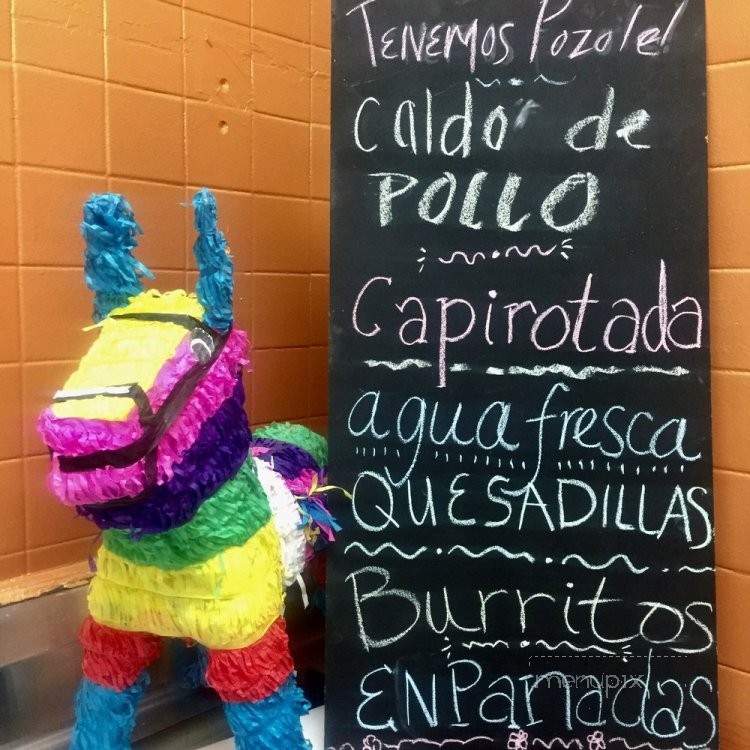 TENEMOS Pozole!
Caldo de
POLLO
Capirotada
agua fresca
QUESADILLAS
Burritos
ENPaNadas
menupix